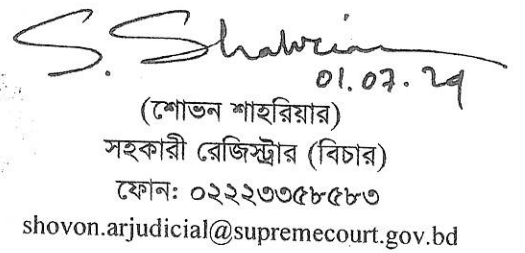 S. Shahriar
01.07.24
(শোভন শাহরিয়ার)
সহকারী রেজিস্ট্রার (বিচার)
ফোন: ০২২২৩৩৫৮৫৮৩
shovon.arjudicial@supremecourt.gov.bd